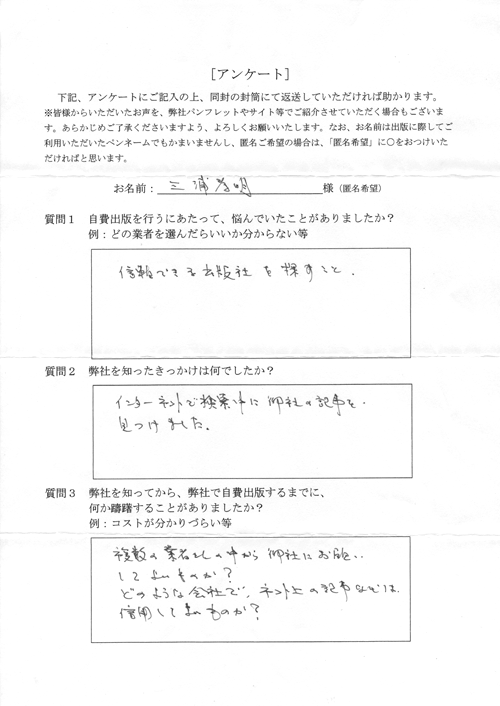 ［アンケート］
下記、アンケートにご記入の上、同封の封筒にて返送していただければ助かります。
※皆様からいただいたお声を、弊社パンフレットやサイト等でご紹介させていただく場合もございま
す。あらかじめご了承くださいますよう、よろしくお願いいたします。なお、お名前は出版に際してご
利用いただいたペンネームでもかまいませんし、匿名ご希望の場合は、「匿名希望」に○をおつけいた
だければと思います。
お名前：三浦 明 様（匿名希望）
質問１ 自費出版を行うにあたって、悩んでいたことがありましたか？
例：どの業者を選んだらいいか分からない等
信頼できる出版社を探すこと．
質問２ 弊社を知ったきっかけは何でしたか？
インターネットで検索中に御社の記事を
見つけました。
質問３ 弊社を知ってから、弊社で自費出版するまでに、
何か躊躇することがありましたか？
例：コストが分かりづらい等
複数の業者さんの中から御社にお願い
してよいものか？
どのような会社で、ネット上の記事などは
信用してよいものか？